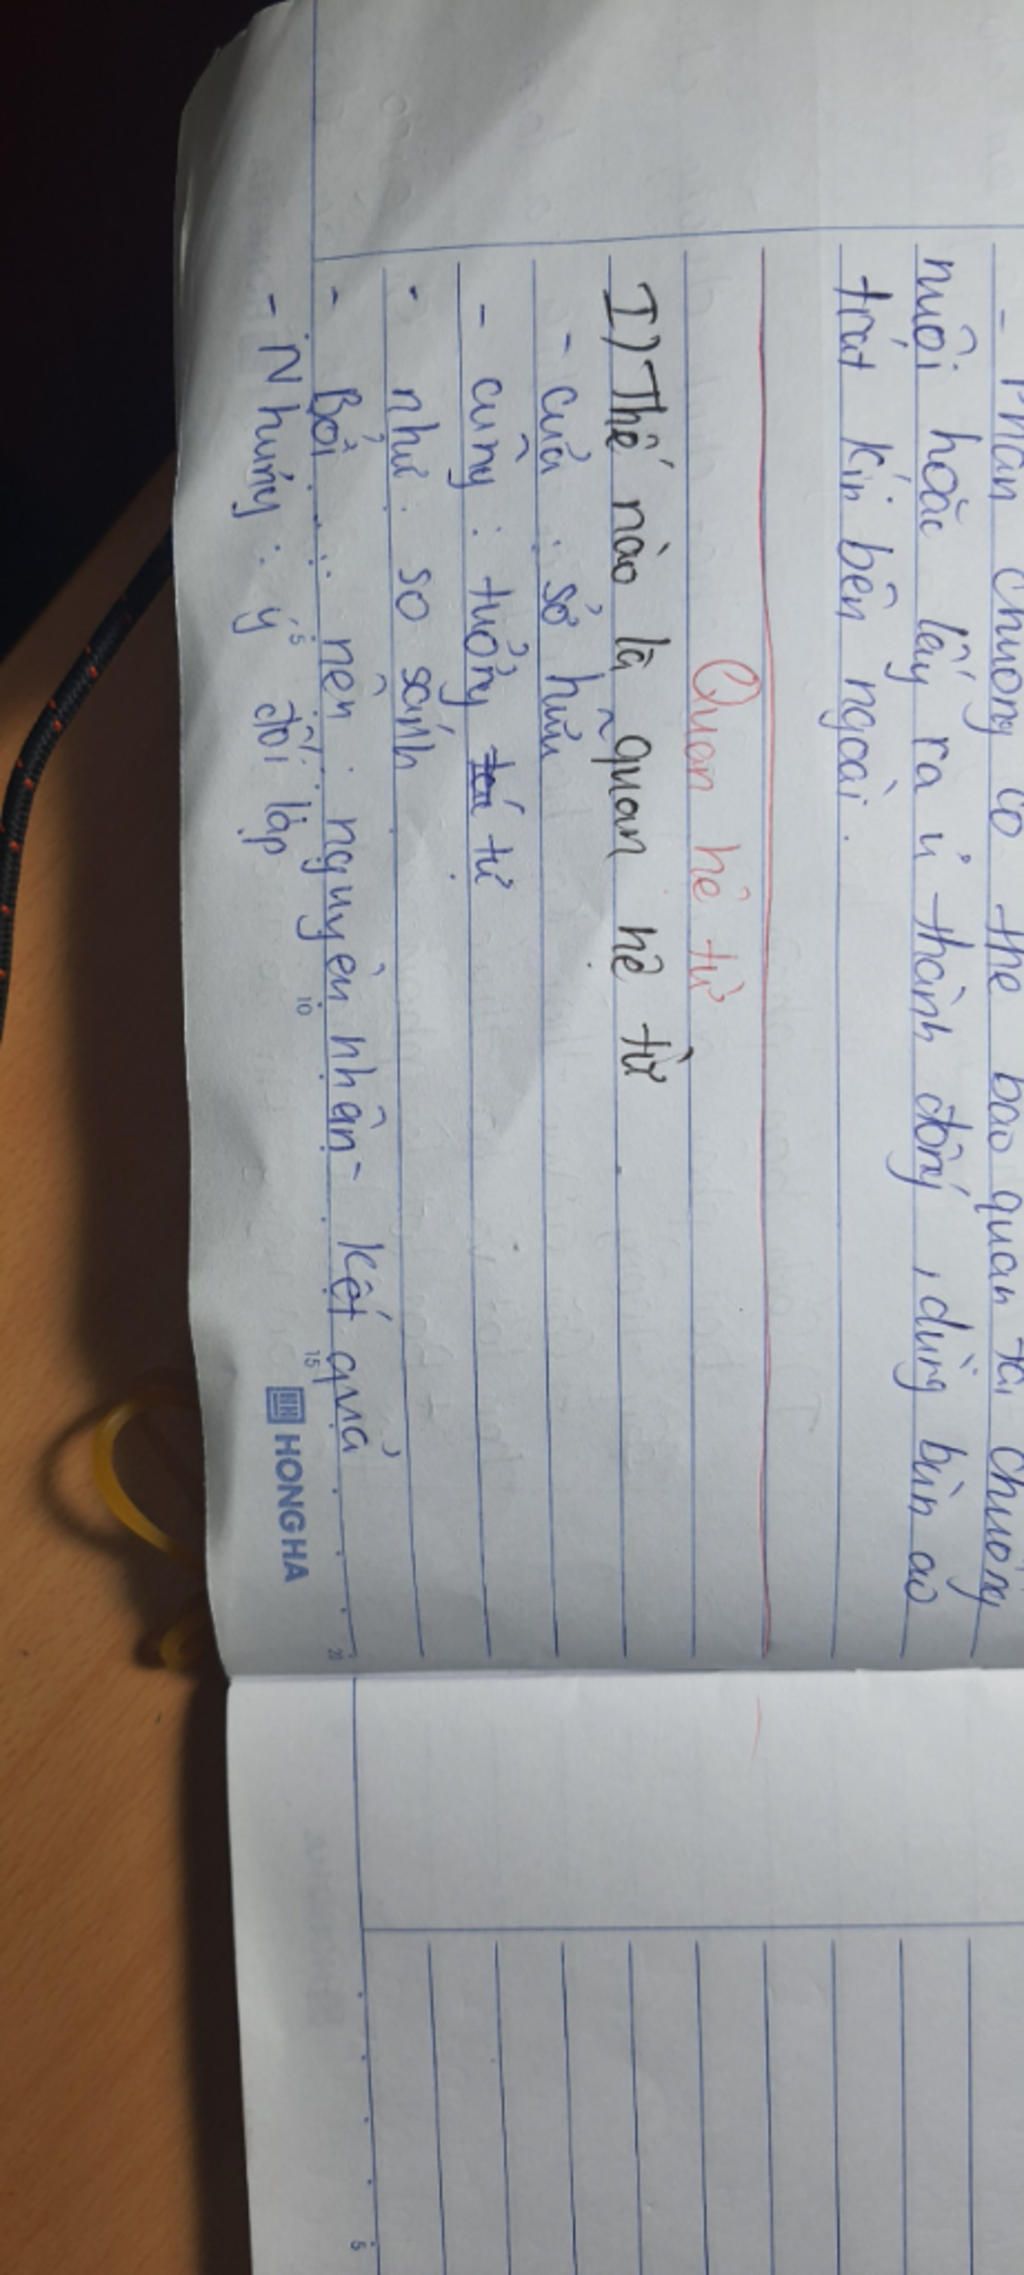 - Phân chuồng có thể bảo quản tại chuồng
nuôi hoặc lấy ra ủ thành đống, dùng bùn ao
trát kín bên ngoài.
Quan hệ từ
I) Thế nào là quan hệ từ
- của : sở hữu
- cũng : tưởng tứ
- như : so sánh
- Bởi ... nên : nguyên nhân - kết quả
- Nhưng : ý đối lập
5 10 15 20
HONG HA
5